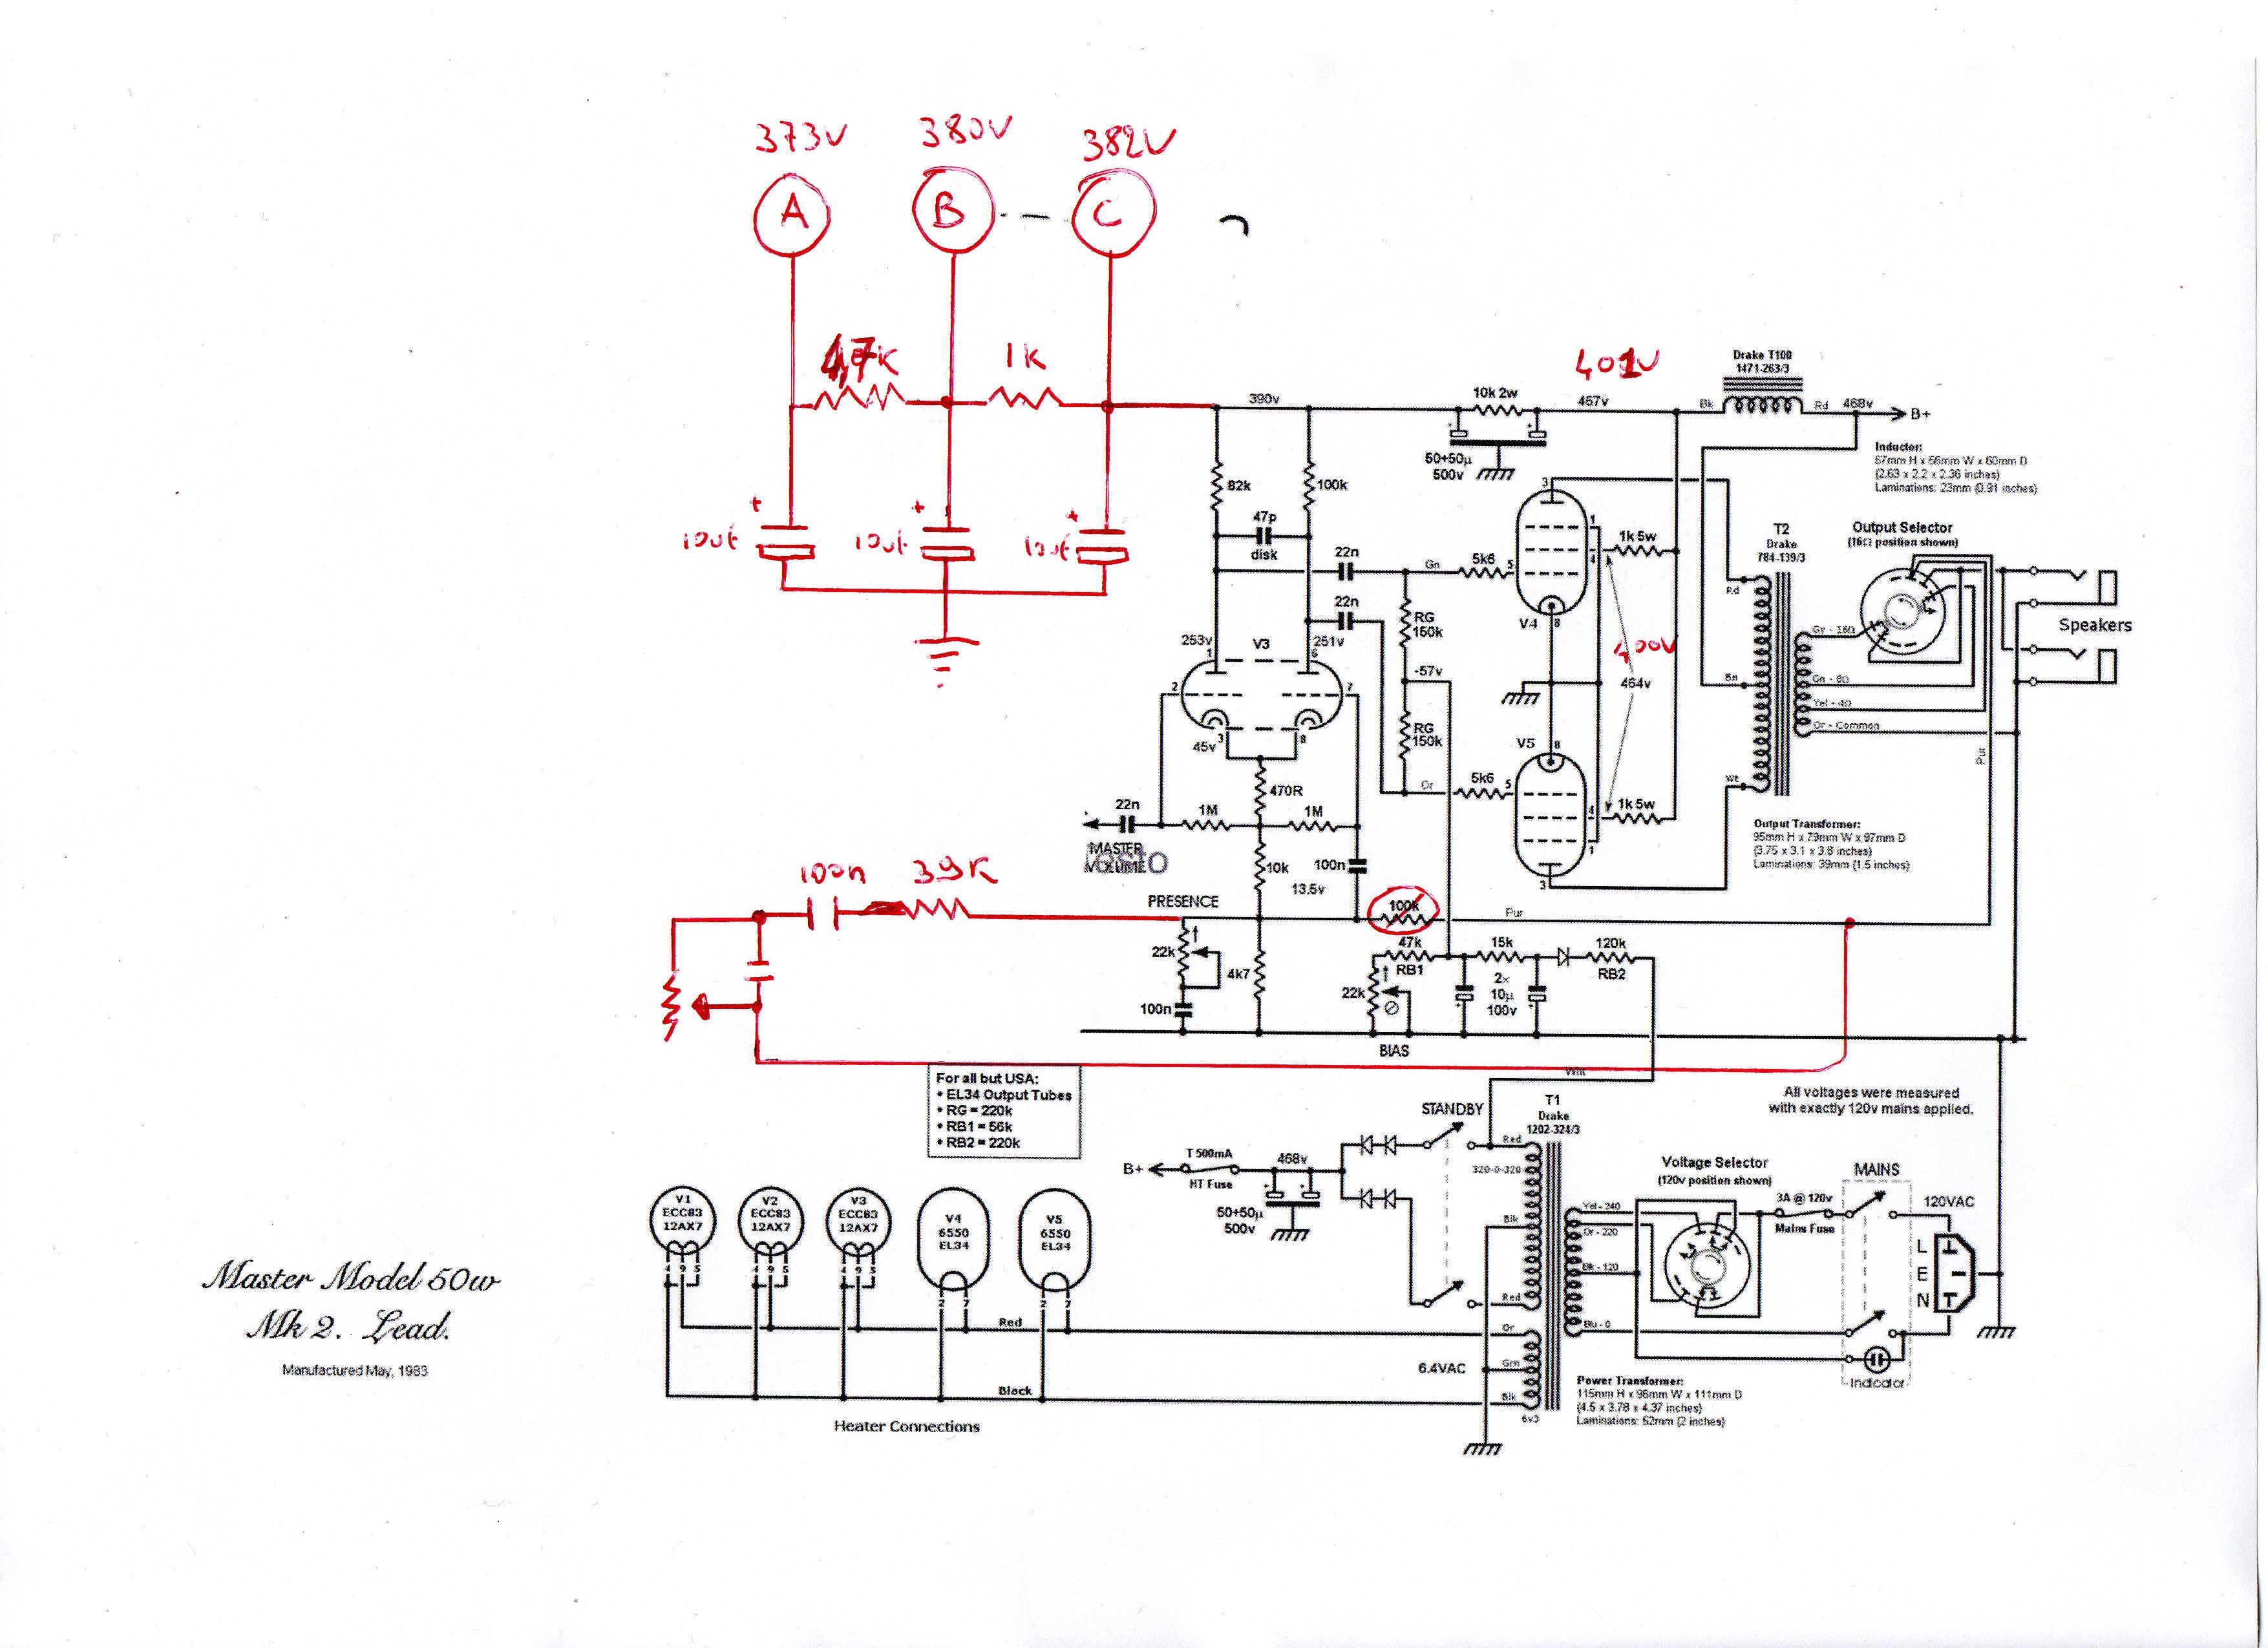 373V
380V
382V
A
B
C
4,7K
1K
10uf
10uf
10uf
+
+
+
401V
Drake T100
1471-263/3
390v
10k 2w
467v
Bk
Rd
468v
B+
50+50µ
500v
Inductor:
67mm H x 56mm W x 60mm D
(2.63 x 2.2 x 2.36 inches)
Laminations: 23mm (0.91 inches)
82k
100k
47p
disk
22n
Gn
5k6
5
3
1
4
1k 5w
V4
8
T2
Drake
784-139/3
Output Selector
(16Ω position shown)
Rd
Gy - 16Ω
Bn
Gn - 8Ω
Yel - 4Ω
Or - Common
Wt
Pur
Speakers
22n
RG
150k
-57v
RG
150k
Or
5k6
5
400V
464v
V5
8
4
1
3
1k 5w
253v
1
V3
251v
6
2
7
45v
3
8
470R
22n
1M
1M
MASTER
VOLUME
resto
10k
100n
13.5v
Output Transformer:
95mm H x 79mm W x 97mm D
(3.75 x 3.1 x 3.8 inches)
Laminations: 39mm (1.5 inches)
100n
39K
PRESENCE
100k
Pur
22k
4k7
100n
47k
RB1
15k
120k
RB2
22k
2x
10µ
100v
BIAS
For all but USA:
• EL34 Output Tubes
• RG = 220k
• RB1 = 56k
• RB2 = 220k
Wht
All voltages were measured
with exactly 120v mains applied.
STANDBY
T1
Drake
1202-324/3
Red
320-0-320
B+
T 500mA
HT Fuse
468v
50+50µ
500v
Blk
Red
Voltage Selector
(120v position shown)
Yel - 240
Or - 220
Bk - 120
Blu - 0
3A @ 120v
Mains Fuse
MAINS
120VAC
L
E
N
Indicator
V1
ECC83
12AX7
V2
ECC83
12AX7
V3
ECC83
12AX7
V4
6550
EL34
V5
6550
EL34
4 9 5
4 9 5
4 9 5
2 7
2 7
Red
Black
Or
6.4VAC
Grn
Blk
6v3
Heater Connections
Power Transformer:
115mm H x 96mm W x 111mm D
(4.5 x 3.78 x 4.37 inches)
Laminations: 52mm (2 inches)
Master Model 50w
Mk 2. Lead.
Manufactured May, 1983